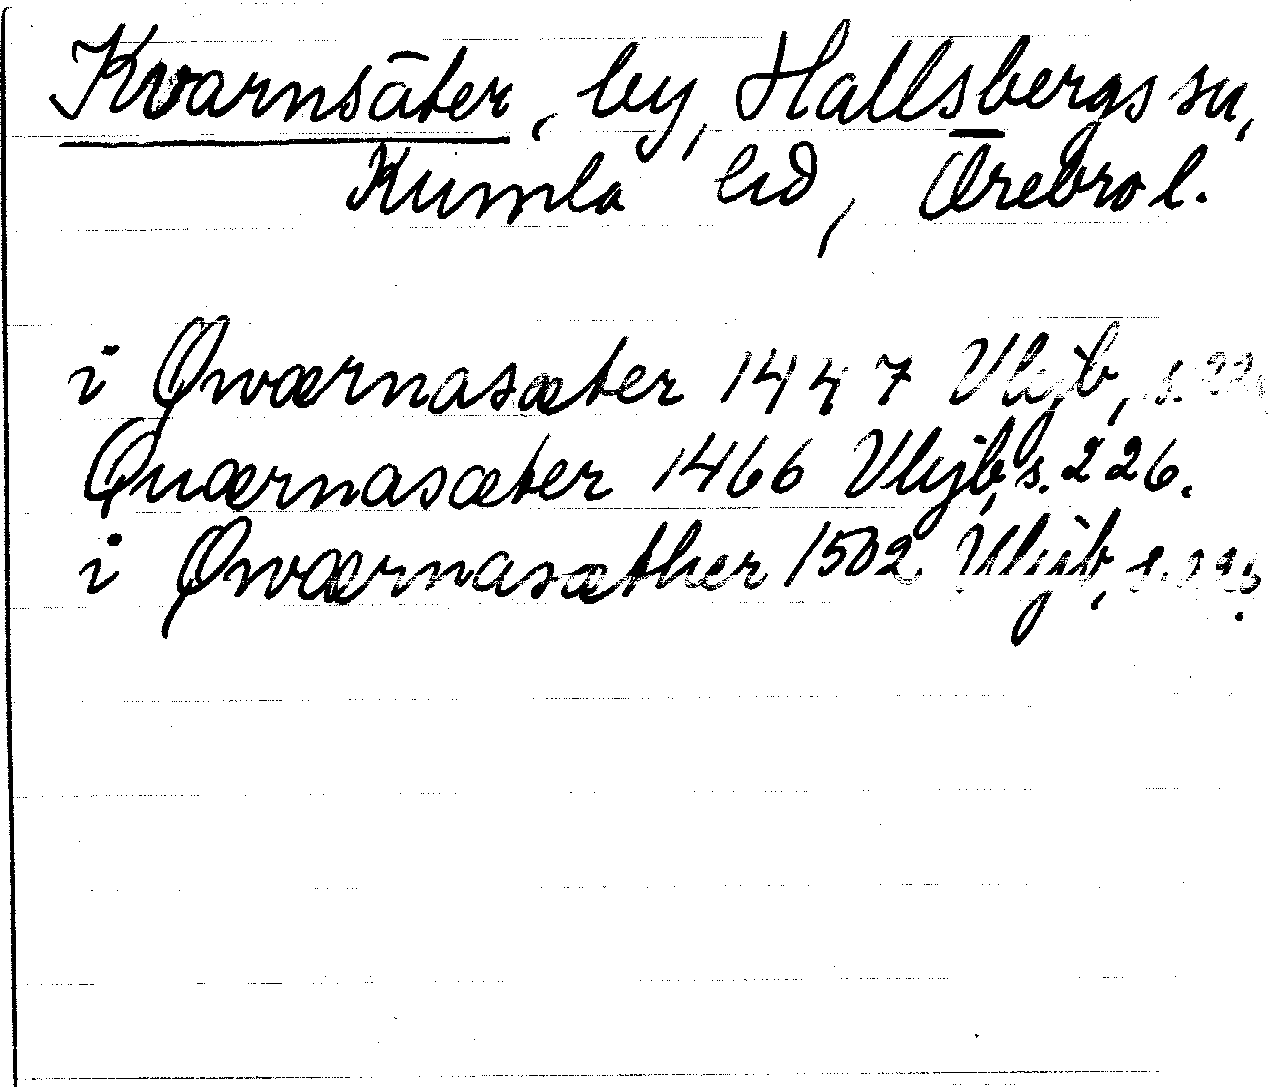 Kvarnsäter, by, Hallsbergs sn,
Kumla hd, Örebro l.
i Qwærnasæter 1447 Vhjb, s.
Quærnasæter 1466 Vhjb, s. 226.
i Qwærnasæther 1502 Vhjb, s.